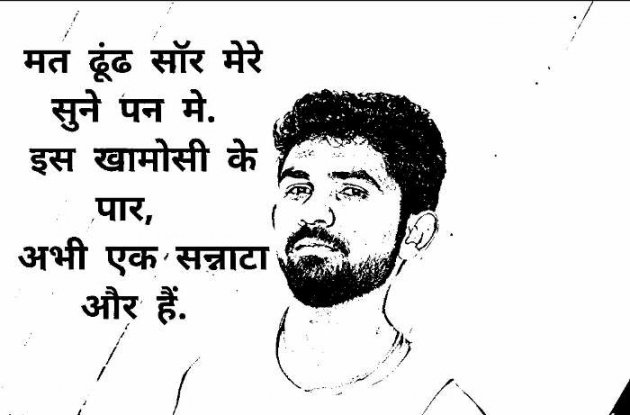 मत ढूंढ सॉर मेरे
सुने पन मे.
इस खामोसी के
पार,
अभी एक सन्नाटा
और हैं.